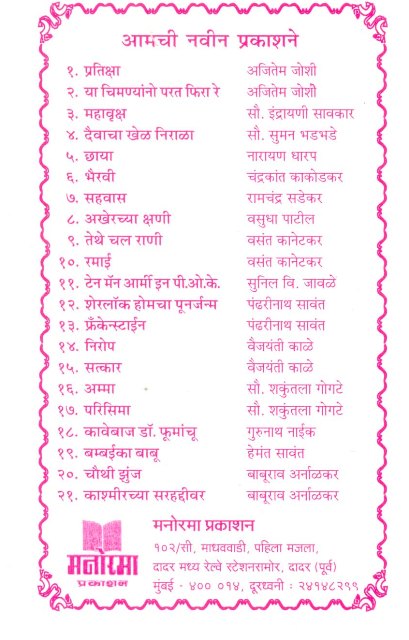 आमची नवीन प्रकाशने
१. प्रतिक्षा अजितेम जोशी
२. या चिमण्यांनो परत फिरा रे अजितेम जोशी
३. महावृक्ष सौ. इंद्रायणी सावकार
४. दैवाचा खेळ निराळा सौ. सुमन भडभडे
५. छाया नारायण धारप
६. भैरवी चंद्रकांत काकोडकर
७. सहवास रामचंद्र सडेकर
८. अखेरच्या क्षणी वसुधा पाटील
९. तेथे चल राणी वसंत कानेटकर
१०. रमाई वसंत कानेटकर
११. टेन मॅन आर्मी इन पी.ओ.के. सुनिल वि. जावळे
१२. शेरलॉक होमचा पूनर्जन्म पंढरीनाथ सावंत
१३. फ्रँकेन्स्टाईन पंढरीनाथ सावंत
१४. निरोप वैजयंती काळे
१५. सत्कार वैजयंती काळे
१६. अम्मा सौ. शकुंतला गोगटे
१७. परिसिमा सौ. शकुंतला गोगटे
१८. कावेबाज डॉ. फूमांचू गुरुनाथ नाईक
१९. बम्बईका बाबू हेमंत सावंत
२०. चौथी झुंज बाबूराव अर्नाळकर
२१. काश्मीरच्या सरहद्दीवर बाबूराव अर्नाळकर
मनोरमा प्रकाशन
मनोरमा प्रकाशन
१०२/सी, माधववाडी, पहिला मजला,
दादर मध्य रेल्वे स्टेशनसमोर, दादर (पूर्व)
मुंबई - ४०० ०१४, दूरध्वनी : २४१४८२९९